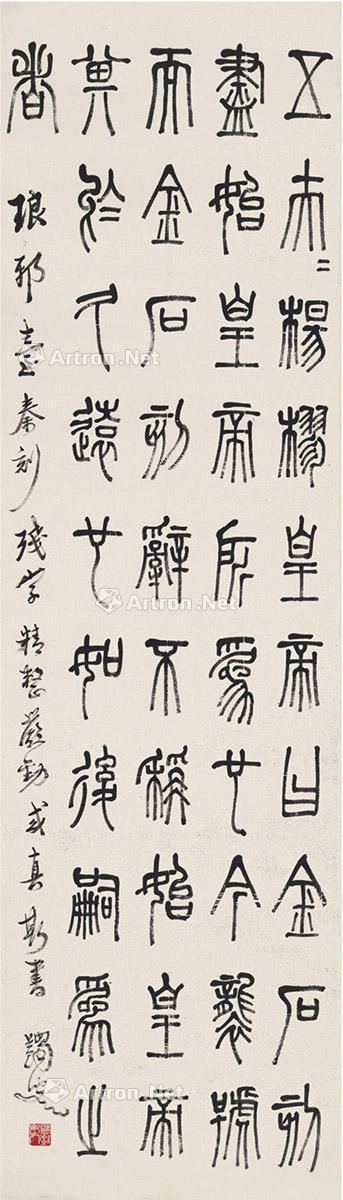 五夫〻楊樛皇帝曰金石刻
盡始皇帝所為也今襲號
而金石刻辭不稱始皇帝
其於久遠也如後嗣為之
者
琅邪臺秦刻殘字精整嚴勁或真斯書 蠲叟
Artron.Net
Artron.Net
Artron.Net
Artron.Net
Artron.Net